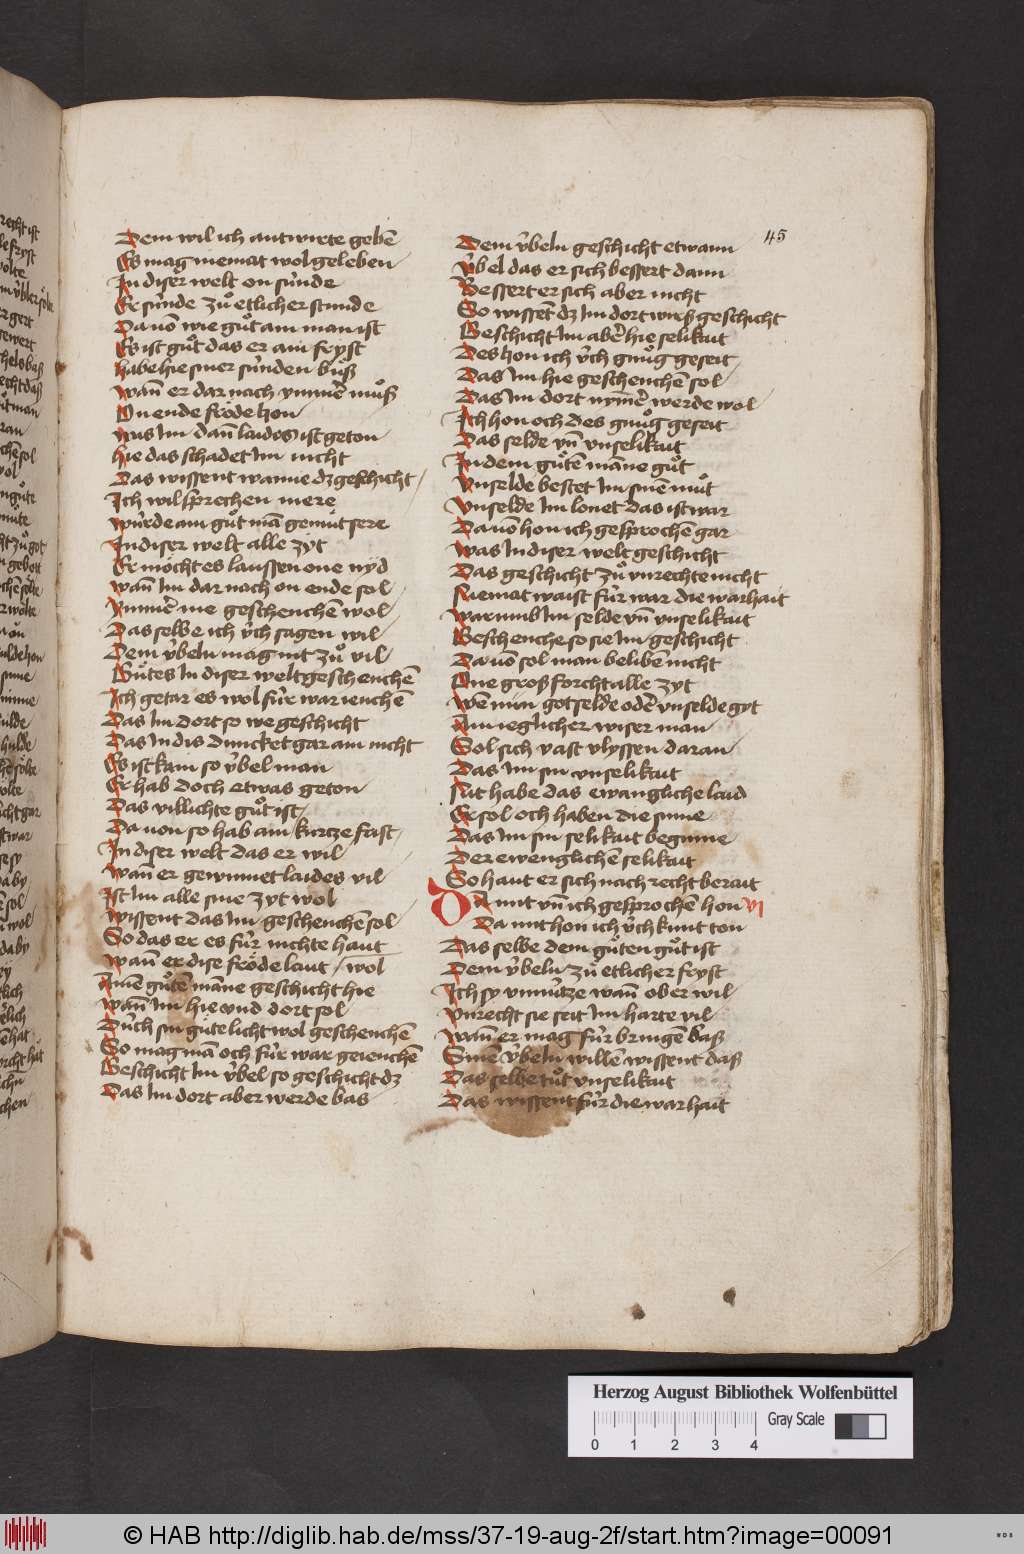 45
Dem wil ich antwirte gebē
Es mag niemat wol geleben
In diser̄ welt on sünde
Er sünde zuͦ etlicher stunde
Da uō wie guͦt am man ist
Es ist guͦt das er am fryst
habe hie siner sünden buͦß
wañ er dar nach ymmē muͦß
On ende froͤde hon
was Im dañ laides ist geton
hie das schadet Im nicht
Das wissent wanne dz geschicht
Ich wil sprechen mere
würde am guͦt mā gemuͤt sere
In diser welt alle zyt
Er moͤcht es laussen one nyd
wañ Im dar nach on ende sol
ymmē me geschenchē wol
Das selbe ich üch sagen wil
Dem übeln mag nit zuͦ vil
Guͦtes In diser welt geschenchē
Ich getar es wol für war ienchē
Das Im dort so we geschicht
Das In dis duncket gar am nicht
Es ist kam so übel man
Er hab doch etwas geton
Das villichte guͦt ist
Da uon so hab am kurtze frist
In diser welt das er wil
wañ er gewinnet laides vil
Ist Im alle sine zyt wol
wissent das Im geschenchē sol
So das er es für nichte haut
wañ er dise froͤde laut / wol
Ainē guͦtē manne geschicht hie
wañ Im hie vnd dort sol
Duͤch sin guͤte licht wol geschenchē
So mag mā och für war geienchē
Geschicht Im übel so geschicht dz
Das Im dort aber werde bas
Dem übeln geschicht etwann
übel das er sich bessert dann
Bessert er sich aber nicht
So wissēt dz Im dort wirß geschicht
Geschicht Im abē hie selikait
Des hon ich üch gnuͦg geseit
Das Im hie geschenchē sol
Das Im dort nymē werde wol
Ich hon och des gnuͦg geseit
Das selde vñ vnselikait
In dem guͦtē manne guͦt
Vnselde bestet Im sinē muͦt
Vnselde Im lonet das ist war
Da uō hon ich gesprochē gar
was In diser welt geschicht
Das geschicht zuͦ vnrechte nicht
Niemat waist für war die warhait
warumb Im selde vñ vnselikait
Geschenche so sie Im geschicht
Da uō sol man belibē nicht
One groß forcht alle zyt
wē nun got selde odē vnselde gyt
Ain ieglicher wiser man
Sol sich vast vlyssen daran
Das Im sin vnselikait
Nit habe das ewangliche laid
Er sol och haben die sinne
Das Im sin selikait beginne
Der ewenglichē selikait
So haut er sich nach recht berait
DA mit vñ ich gesprochē hon VI
Da mit hon ich üch kunt ton
Das selbe dem guͦten guͦt ist
Dem übeln zuͦ etlicher fryst
Ich sy vnnütze wañ ober wil
vnrecht sie seit Im harte vil
wañ er mag für bringē daß
Sinē übeln willē wissent daß
Das selbe tuͦt vnselikait
Das wissent für die warhait
Herzog August Bibliothek Wolfenbüttel
Gray Scale
0 1 2 3 4
© HAB http://diglib.hab.de/mss/37-19-aug-2f/start.htm?image=00091